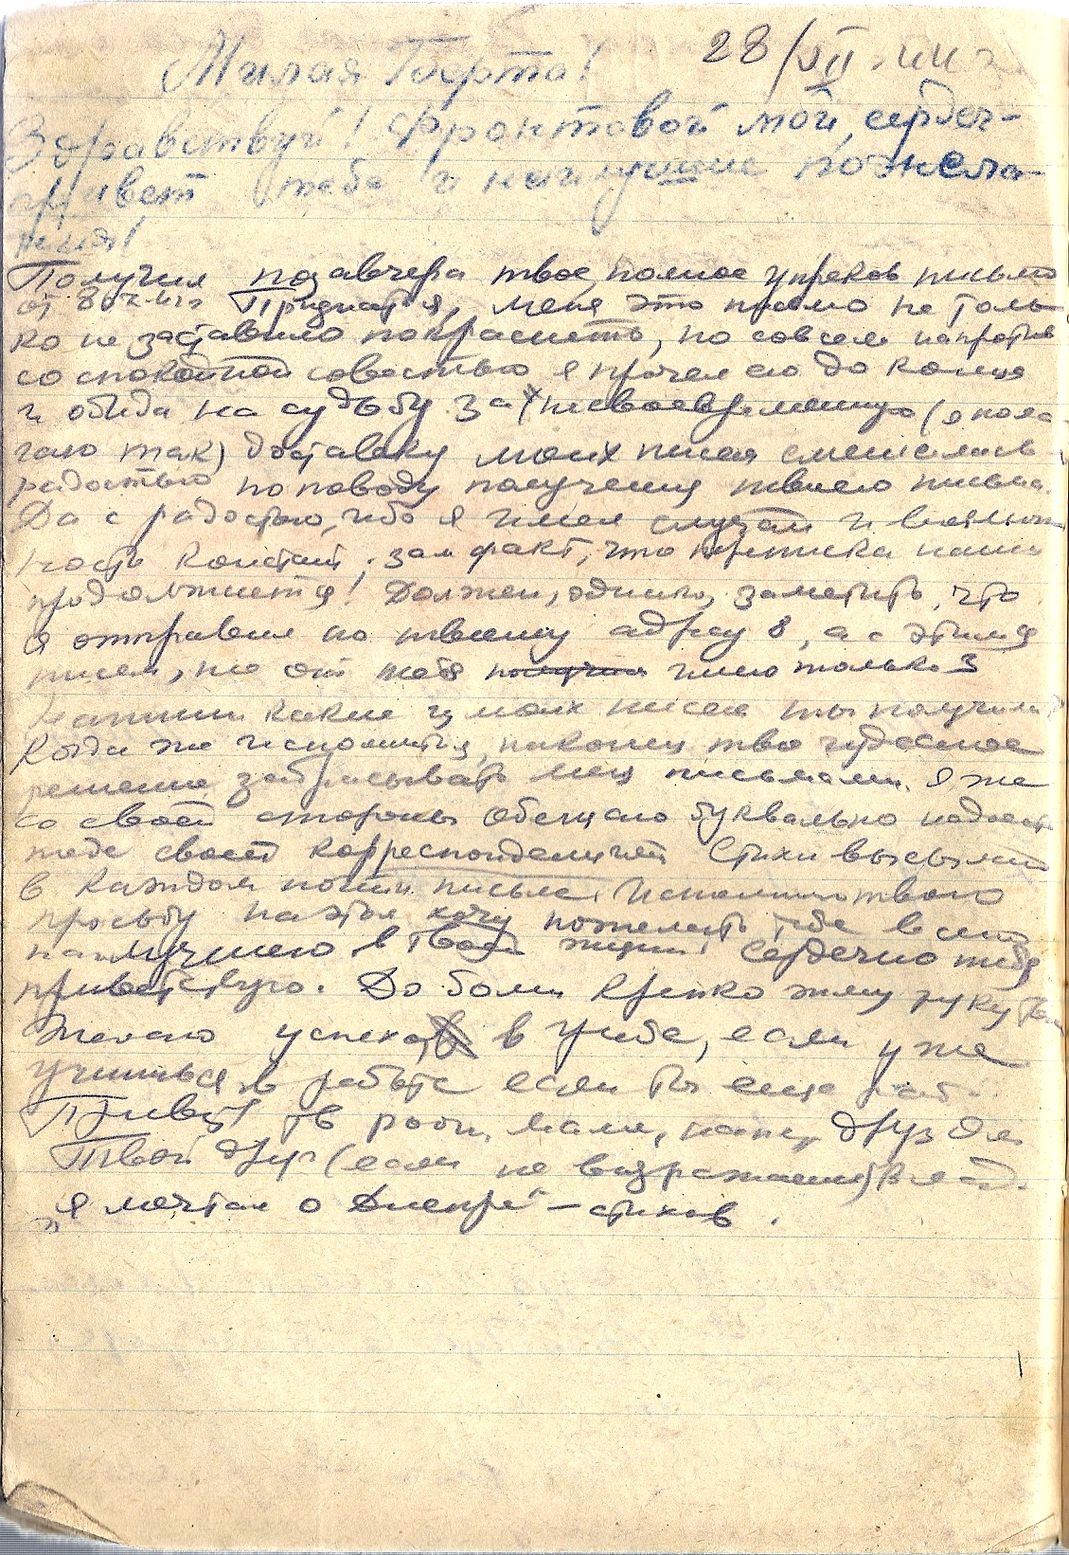 28/VII.44 г
Милая Берта!
Здравствуй! Фронтовой мой, сердеч-
привет тебе и наилучшие пожела-
ния!
Получил позавчера твое, полное упреков письмо
от Признаться, меня это письмо не толь-
ко не заставило покраснеть, но совсем напротив
со спокойной совестью я прочел его до конца
и обида на судьбу за несвоевременную (я пола-
гаю так) доставку моих писем смешалась
радостью по поводу получения твоего письма.
Да с радостью, ибо я имел случай и
ность факт, что переписка наша
продолжается! Должен, однако, заметить, что
я отправил по твоему адресу 8, а с этим 9
писем, но от тебя получил имею только 3
Напиши какие из моих писем ты получила,
Когда же исполнится, наконец твое чудесное
решение забрасывать меня письмами. Я же
со своей стороны обещаю буквально надоесть
тебе своей корреспонденцией Стихи высылаю
в каждом почти письме, исполняю твою
просьбу На этом хочу пожелать тебе всего
наилучшего в твоей жизни! Сердечно тебя
приветствую. До боли крепко жму руку
Желаю успеха в учебе, если уже
учишься и в работе если ты еще раб.
Привет тв родн, маме, папе, друзьям
Твой друг (если не возражаешь) Влад.
„Я мечтал о Днепре" – стихов.